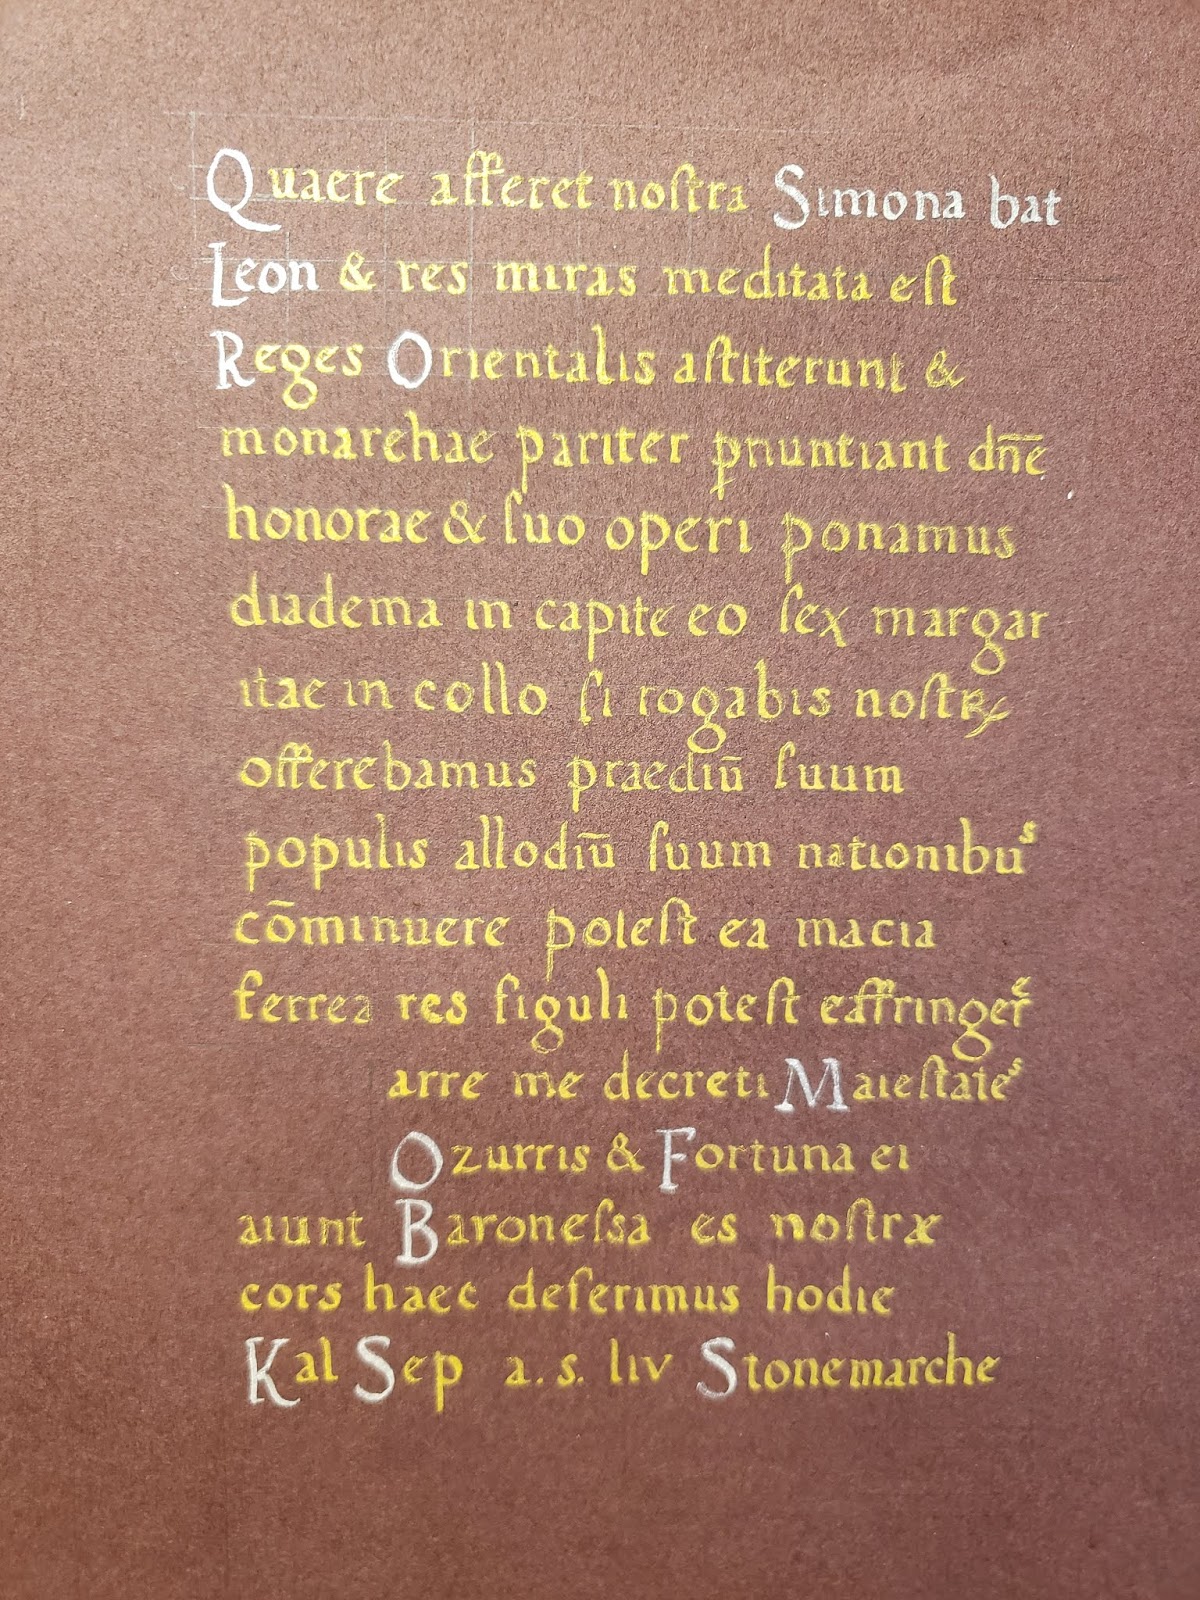 Quaere afferet noſtra Simona bat
Leon & res miras meditata eſt
Reges Orientalis aſtiterunt &
monarchae pariter ꝓnuntiant dn̄ē
honorae & ſuo operi ponamus
diadema in capite eo ſex margar
itae in collo ſi rogabis noſtꝝ
offerebamus praediū ſuum
populis allodiū ſuum nationibuˢ
cōminuere poteſt ea macia
ferrea res figuli poteſt eaffringerͤ
arre me decreti Maieſtateˢ
Ozurris & Fortuna ei
aiunt Baroneſsa es noſtræ
cors haec deferimus hodie
Kal Sep a.s. liv Stonemarche